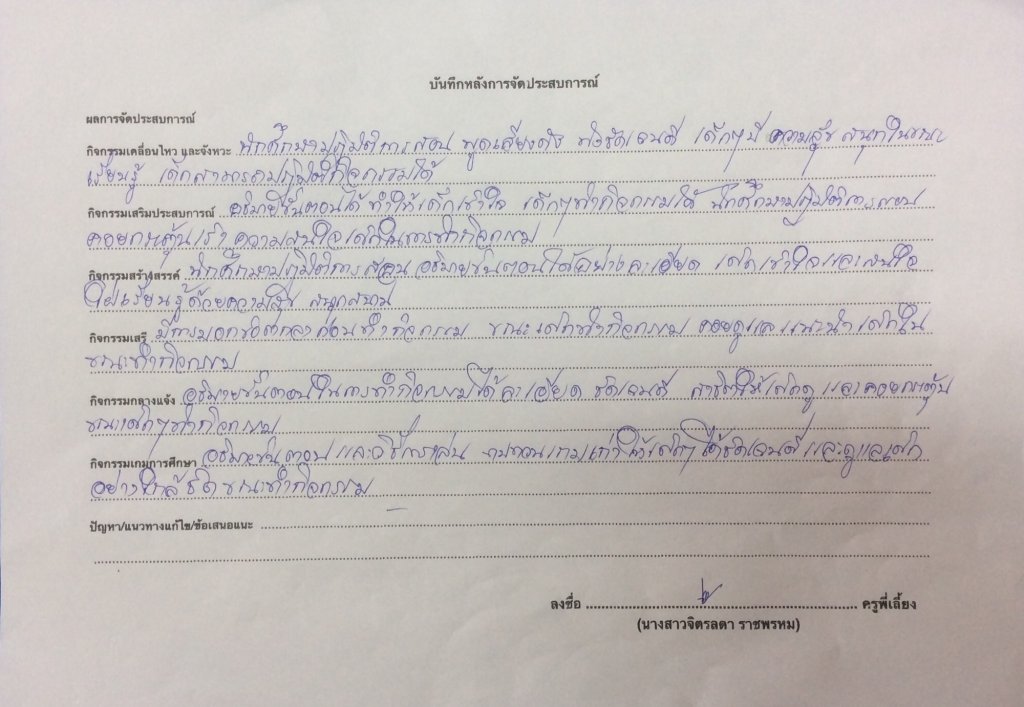 บันทึกหลังการจัดประสบการณ์
ผลการจัดประสบการณ์
กิจกรรมเคลื่อนไหว และจังหวะ นักศึกษาปฏิบัติการสอน พูดเสียงดัง ฟังชัดเจนดี เด็กๆมี ความสุข สนุกในขณะ
เรียนรู้ เด็กสามารถปฏิบัติกิจกรรมได้
กิจกรรมเสริมประสบการณ์ อธิบายขั้นตอนได้ ทำให้เด็กเข้าใจ เด็กๆทำกิจกรรมได้ นักศึกษาปฏิบัติการสอน
คอยกระตุ้นเร้าความสนใจเด็กในการทำกิจกรรม
กิจกรรมสร้างสรรค์ นักศึกษาปฏิบัติการสอน อธิบายขั้นตอนได้อย่างละเอียด เด็กเข้าใจและสนใจ
ใฝ่เรียนรู้ด้วยความสุข สนุกสนาน
กิจกรรมเสรี มีการบอกข้อตกลงก่อนทำกิจกรรม ขณะเด็กทำกิจกรรม คอยดูแลแนะนำเด็กใน
ขณะทำกิจกรรม
กิจกรรมกลางแจ้ง อธิบายขั้นตอนในการทำกิจกรรมได้ละเอียด ชัดเจนดี สาธิตให้เด็กดู และคอยกระตุ้น
ขณะเด็กๆทำกิจกรรม
กิจกรรมเกมการศึกษา อธิบายขั้นตอน และวิธีการเล่น ทบทวนเกมเก่าให้เด็กๆได้ชัดเจนดีและดูแลเด็ก
อย่างใกล้ชิดขณะทำกิจกรรม
ปัญหา/แนวทางแก้ไข/ข้อเสนอแนะ
ลงชื่อ ครูพี่เลี้ยง
(นางสาวจิตรลดา ราชพรหม)